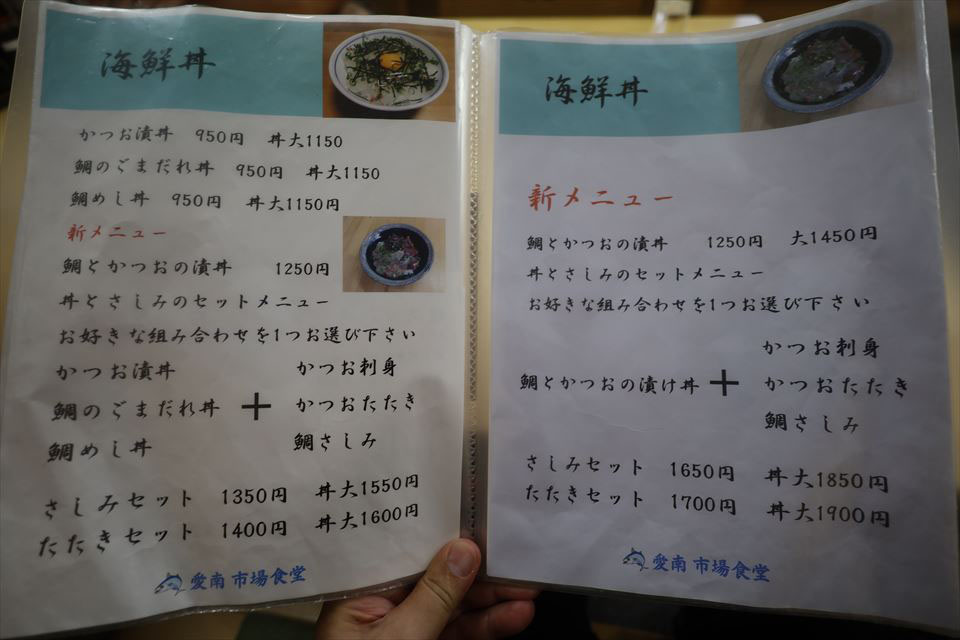 海鮮丼
かつお漬丼 950円 丼大1150
鯛のごまだれ丼 950円 丼大1150
鯛めし丼 950円 丼大1150円
新メニュー
鯛とかつおの漬丼 1250円
丼とさしみのセットメニュー
お好きな組み合わせを1つお選び下さい
かつお漬丼 かつお刺身
鯛のごまだれ丼 + かつおたたき
鯛めし丼 鯛さしみ
さしみセット 1350円 丼大1550円
たたきセット 1400円 丼大1600円
愛南市場食堂
海鮮丼
新メニュー
鯛とかつおの漬丼 1250円 大1450円
丼とさしみのセットメニュー
お好きな組み合わせを1つお選び下さい
かつお刺身
鯛とかつおの漬け丼 + かつおたたき
鯛さしみ
さしみセット 1650円 丼大1850円
たたきセット 1700円 丼大1900円
愛南市場食堂